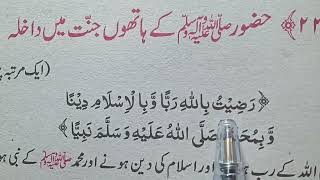 ﴿۲۲﴾ حضور ﷺ کے ہاتھوں جنت میں داخلہ
(ایک مرتبہ
﴿رَضِيْتُ بِاللهِ رَبًّا وَّبِالْاِسْلَامِ دِيْنًا
وَّ بِمُحَمَّدٍ صَلَّى اللهُ عَلَيْهِ وَسَلَّمَ نَبِيًّا﴾
اللہ کے رب ہونے اور اسلام کی دین ہونے اور محمد ﷺ کے نبی ہو